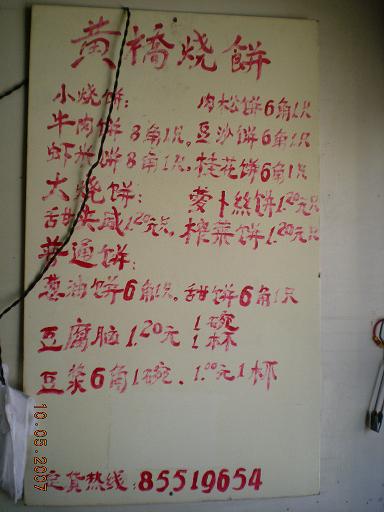 黄橋烧餅
小烧饼: 肉松饼6角1只
牛肉饼8角1只。豆沙饼6角1只
虾米饼8角1只。桂花饼6角1只
大烧饼: 萝卜絲饼1.20元只
甜咸1.20元只, 榨菜饼1.20元只
普通饼:
葱油饼6角1只. 甜饼6角1只
豆腐脑1.20元 1碗 1杯
豆浆6角1碗. 1.00元1杯
定货热线:85519654
10.05.2007